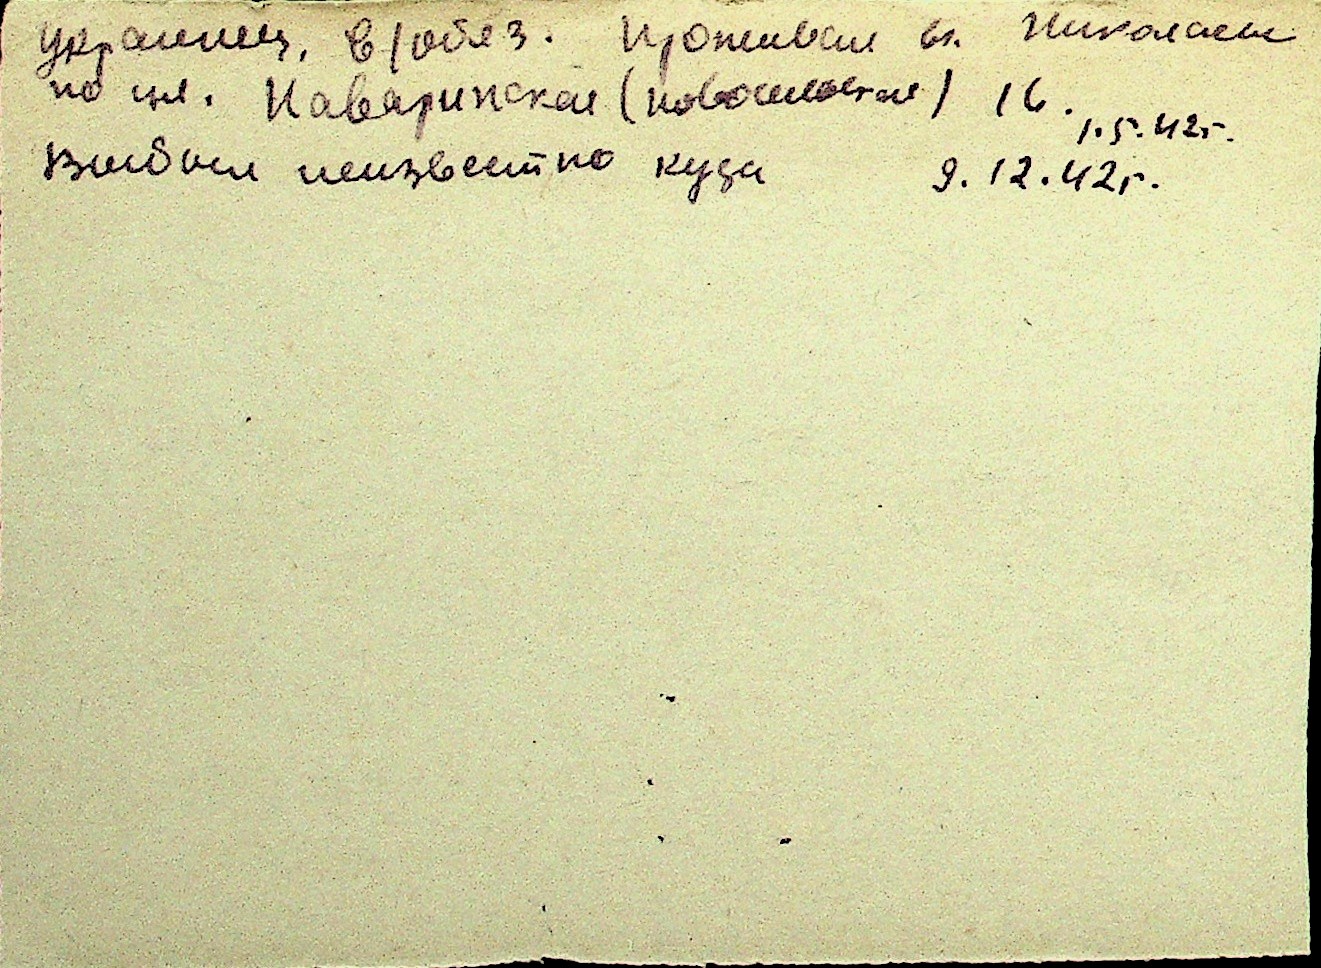 украинец, в/обяз. Проживал в г. Николаеве
по ул. Наваринская (новосельская) 16.
1.5.42г.
Выбыл неизвестно куда 9.12.42г.